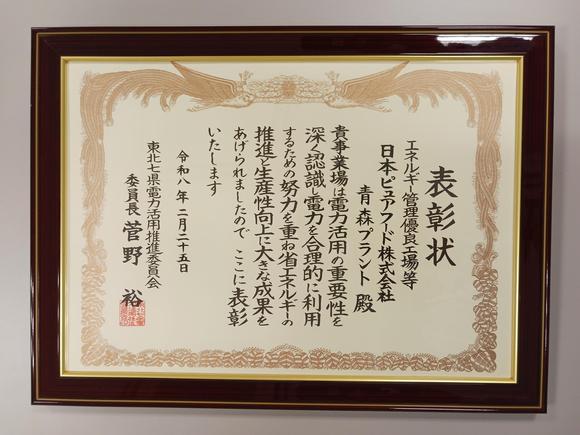 表彰状
エネルギー管理優良工場等
日本ピュアフード株式会社
青森プラント 殿
貴事業場は電力活用の重要性を
深く認識し電力を合理的に利用
するための努力を重ね省エネルギーの
推進と生産性向上に大きな成果を
あげられましたので ここに表彰
いたします
令和八年二月二十五日
東北七県電力活用推進委員会
委員長 菅野 裕